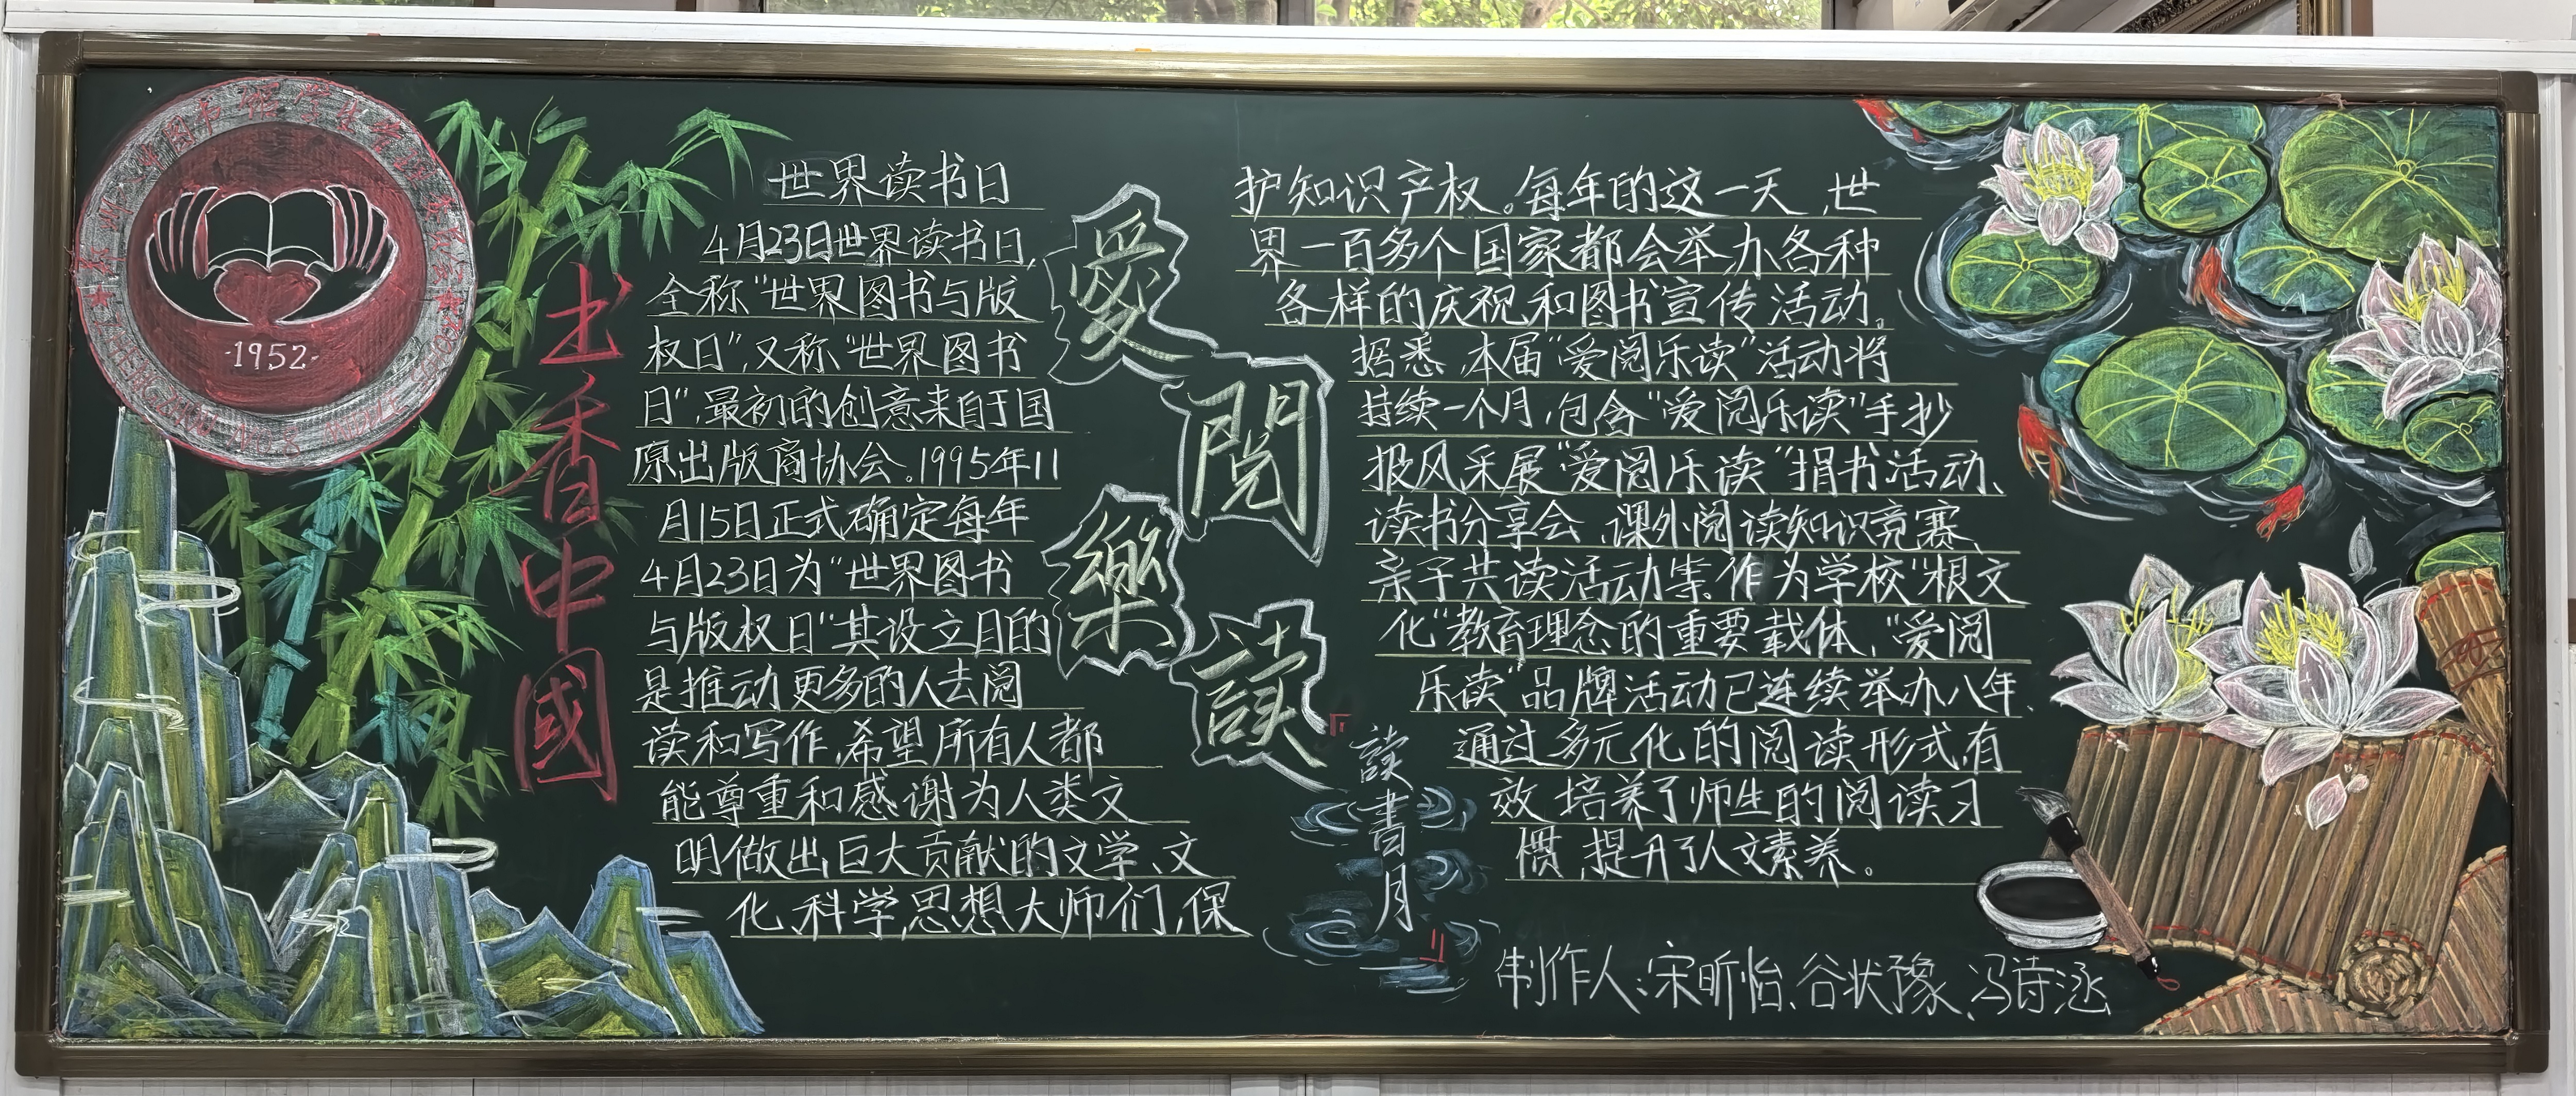 1952
書香中國
世界读书日
4月23日世界读书日,
全称"世界图书与版
权日",又称"世界图书
日",最初的创意来自于国
原出版商协会。1995年11
月15日正式确定每年
4月23日为"世界图书
与版权日"其设立目的
是推动更多的人去阅
读和写作,希望所有人都
能尊重和感谢为人类文
明做出巨大贡献的文学、文
化、科学、思想大师们,保
愛
閱
樂
讀
讀書月
护知识产权。每年的这一天,世
界一百多个国家都会举办各种
各样的庆祝和图书宣传活动。
据悉,本届"爱阅乐读"活动将
持续一个月,包含"爱阅乐读"手抄
报风采展"爱阅乐读"捐书活动、
读书分享会、课外阅读知识竞赛、
亲子共读活动集。作为学校"根文
化"教育理念的重要载体,"爱阅
乐读"品牌活动已连续举办八年,
通过多元化的阅读形式,有
效培养了师生的阅读习
惯,提升了人文素养。
制作人:宋昕怡、谷状豫、冯诗涵